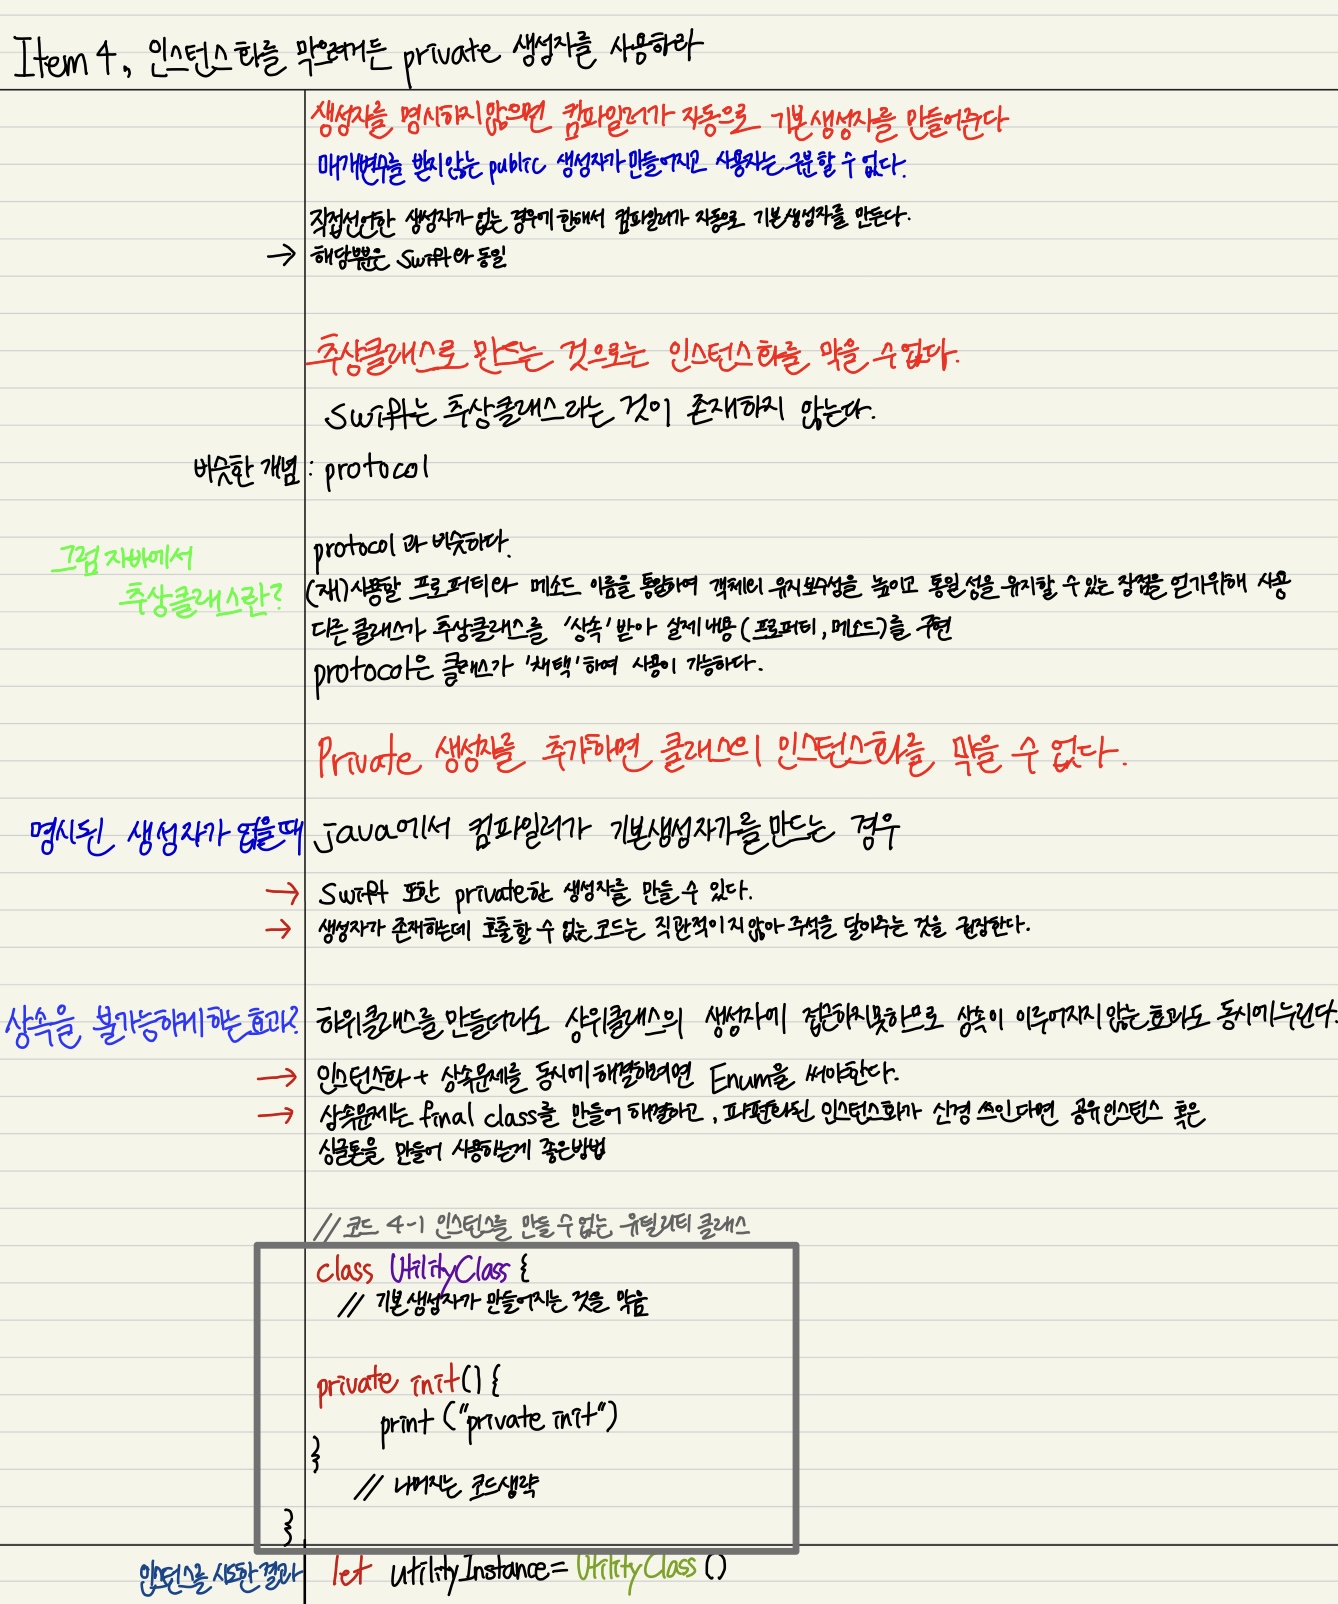 Item 4, 인스턴스화를 막으려거든 private 생성자를 사용하라
생성자를 명시하지않으면 컴파일러가 자동으로 기본생성자를 만들어준다
매개변수를 받지않는 public 생성자가 만들어지고 사용자는 구분할 수 없다.
직접선언한 생성자가 없는 경우에 한해서 컴파일러가 자동으로 기본생성자를 만든다.
→ 해당부분은 Swift와 동일
추상클래스로 만드는 것으로는 인스턴스화를 막을 수 없다.
Swift는 추상클래스라는 것이 존재하지 않는다.
비슷한 개념 : protocol
그럼 자바에서
추상클래스란?
protocol과 비슷하다.
(재)사용할 프로퍼티와 메소드 이름을 통일하여 객체의 유지보수성을 높이고 통일성을 유지할 수 있는 장점을 얻기위해 사용
다른 클래스가 추상클래스를 '상속' 받아 실제 내용(프로퍼티, 메소드)를 구현
protocol은 클래스가 '채택'하여 사용이 가능하다.
Private 생성자를 추가하면 클래스의 인스턴스화를 막을 수 없다.
명시된 생성자가 없을때 java에서 컴파일러가 기본생성자가를 만드는 경우
→ Swift 또한 private한 생성자를 만들 수 있다.
→ 생성자가 존재하는데 호출할 수 없는 코드는 직관적이지않아 주석을 달아주는 것을 권장한다.
상속을 불가능하게하는효과? 하위클래스를 만들더라도 상위클래스의 생성자에 접근하지못하므로 상속이 이루어지지 않는 효과도 동시에 누린다.
→ 인스턴스화 + 상속문제를 동시에 해결하려면 Enum을 써야한다.
→ 상속문제는 final class를 만들어 해결하고, 파편화된 인스턴스화가 신경 쓰인다면 공유인스턴스 혹은
싱글톤을 만들어 사용하는게 좋은방법
// 코드 4-1 인스턴스를 만들 수 없는 유틸리티 클래스
class UtilityClass {
// 기본생성자가 만들어지는 것을 막음
private init() {
print ("private init")
}
// 나머지는 코드생략
}
인스턴스를 시도한 결과 let utilityInstance = UtilityClass ()